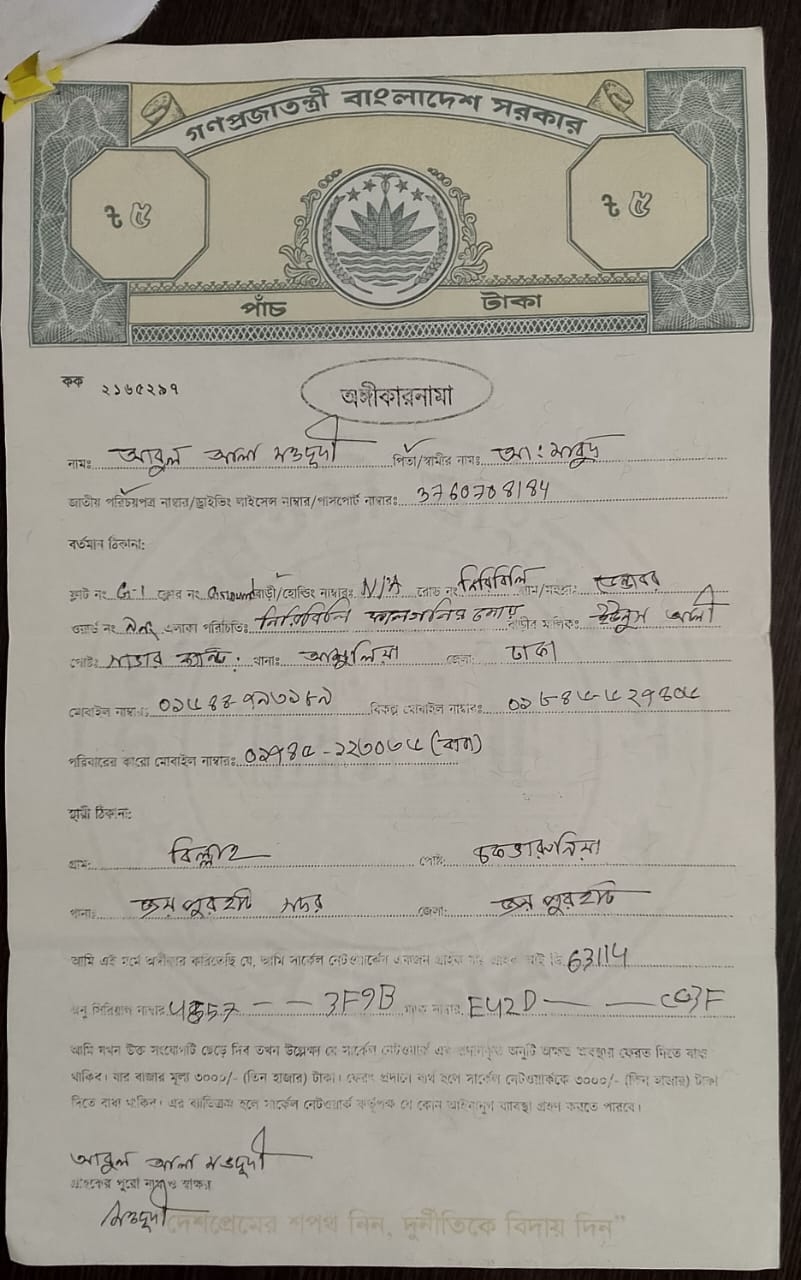 গণপ্রজাতন্ত্রী বাংলাদেশ সরকার
৳ ৫ ৳ ৫
পাঁচ টাকা
কক ২১৬৫২৯৭
অঙ্গীকারনামা
নামঃ আবুল আলা মওদুদী পিতা/স্বামীর নামঃ আঃ মাবুদ
জাতীয় পরিচয়পত্র নাম্বার/ড্রাইভিং লাইসেন্স নাম্বার/পাসপোর্ট নাম্বারঃ 3760708184
বর্তমান ঠিকানা:
ফ্লাট নং G-1 ফ্লোর নং Ground বাড়ী/হোল্ডিং নাম্বারঃ N/A রোড নং নিরিবিলি গ্রাম/মহল্লাঃ
ওয়ার্ড নং এলাকা পরিচিতিঃ নিরিবিলি বাড়ীর মালিকঃ ইউনুস আলী
পোষ্টঃ সাভার ক্যান্ট: থানাঃ আশুলিয়া জেলাঃ ঢাকা
মোবাইল নাম্বারঃ বিকল্প মোবাইল নাম্বারঃ
পরিবারের কারো মোবাইল নাম্বারঃ
স্থায়ী ঠিকানা:
গ্রাম: বিল্লাহ পোষ্ট:
থানাঃ জয়পুরহাট সদর জেলা: জয়পুরহাট
আমি এই মর্মে অঙ্গীকার করিতেছি যে, আমি সার্কেল নেটওয়ার্কের একজন গ্রাহক আই ডি: 63114
অনু সিরিয়াল নাম্বার 3F9B ম্যাক নাম্বার E42D — — CG3F
আমি যখন উক্ত সংযোগটি ছেড়ে দিব তখন উল্লেখ্য যে সার্কেল নেটওয়ার্ক এর প্রদানকৃত অনুটি অক্ষত অবস্থায় ফেরত দিতে বাধ্য
থাকিব। যার বাজার মূল্য ৩০০০/- (তিন হাজার) টাকা। ফেরৎ প্রদানে ব্যর্থ হলে সার্কেল নেটওয়ার্ককে ৩০০০/- (তিন হাজার) টাকা
দিতে বাধ্য থাকিব। এর ব্যতিক্রম হলে সার্কেল নেটওয়ার্ক কর্তৃপক্ষ যে কোন আইনানুগ ব্যবস্থা গ্রহণ করতে পারবে।
আবুল আলা মওদুদী
গ্রাহকের পুরো নাম ও স্বাক্ষর
মওদুদী
দেশপ্রেমের শপথ নিন, দুর্নীতিকে বিদায় দিন"